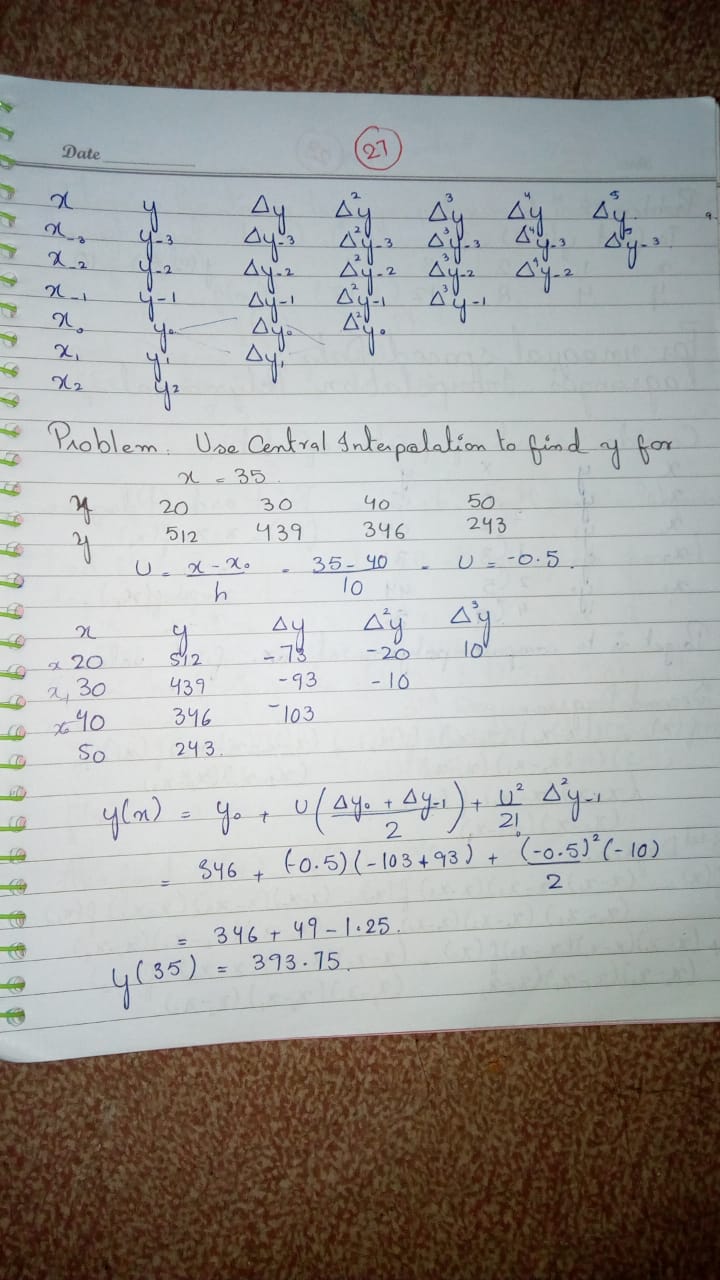 Date
27
x y Δy Δ²y Δ³y Δ⁴y Δ⁵y
x₋₃ y₋₃ Δy₋₃ Δ²y₋₃ Δ³y₋₃ Δ⁴y₋₃ Δ⁵y₋₃
x₋₂ y₋₂ Δy₋₂ Δ²y₋₂ Δ³y₋₂ Δ⁴y₋₂
x₋₁ y₋₁ Δy₋₁ Δ²y₋₁ Δ³y₋₁
x₀ y₀ Δy₀ Δ²y₀
x₁ y₁ Δy₁
x₂ y₂
Problem. Use Central Interpolation to find y for
x = 35.
20 30 40 50
y 512 439 346 243
U = x - x₀ / h = 35 - 40 / 10 = U = -0.5.
x y Δy Δ²y Δ³y
x 20 512 -73 -20 10
x₁ 30 439 -93 -10
x₀ 40 346 -103
50 243.
y(x) = y₀ + U(Δy₀ + Δy₋₁ / 2) + U²/2! Δ²y₋₁
= 346 + (-0.5)(-103+93) + (-0.5)²(-10) / 2
= 346 + 49 - 1.25.
y(35) = 393.75.